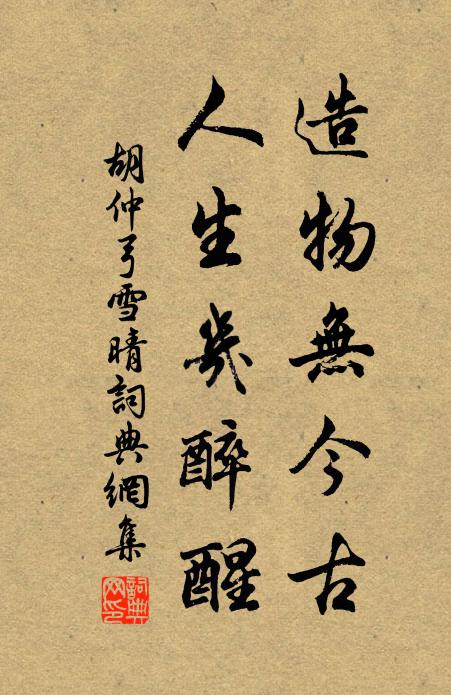 造物無今古
人生幾醉醒
胡仲弓雪晴詞典網集
詞典
网印